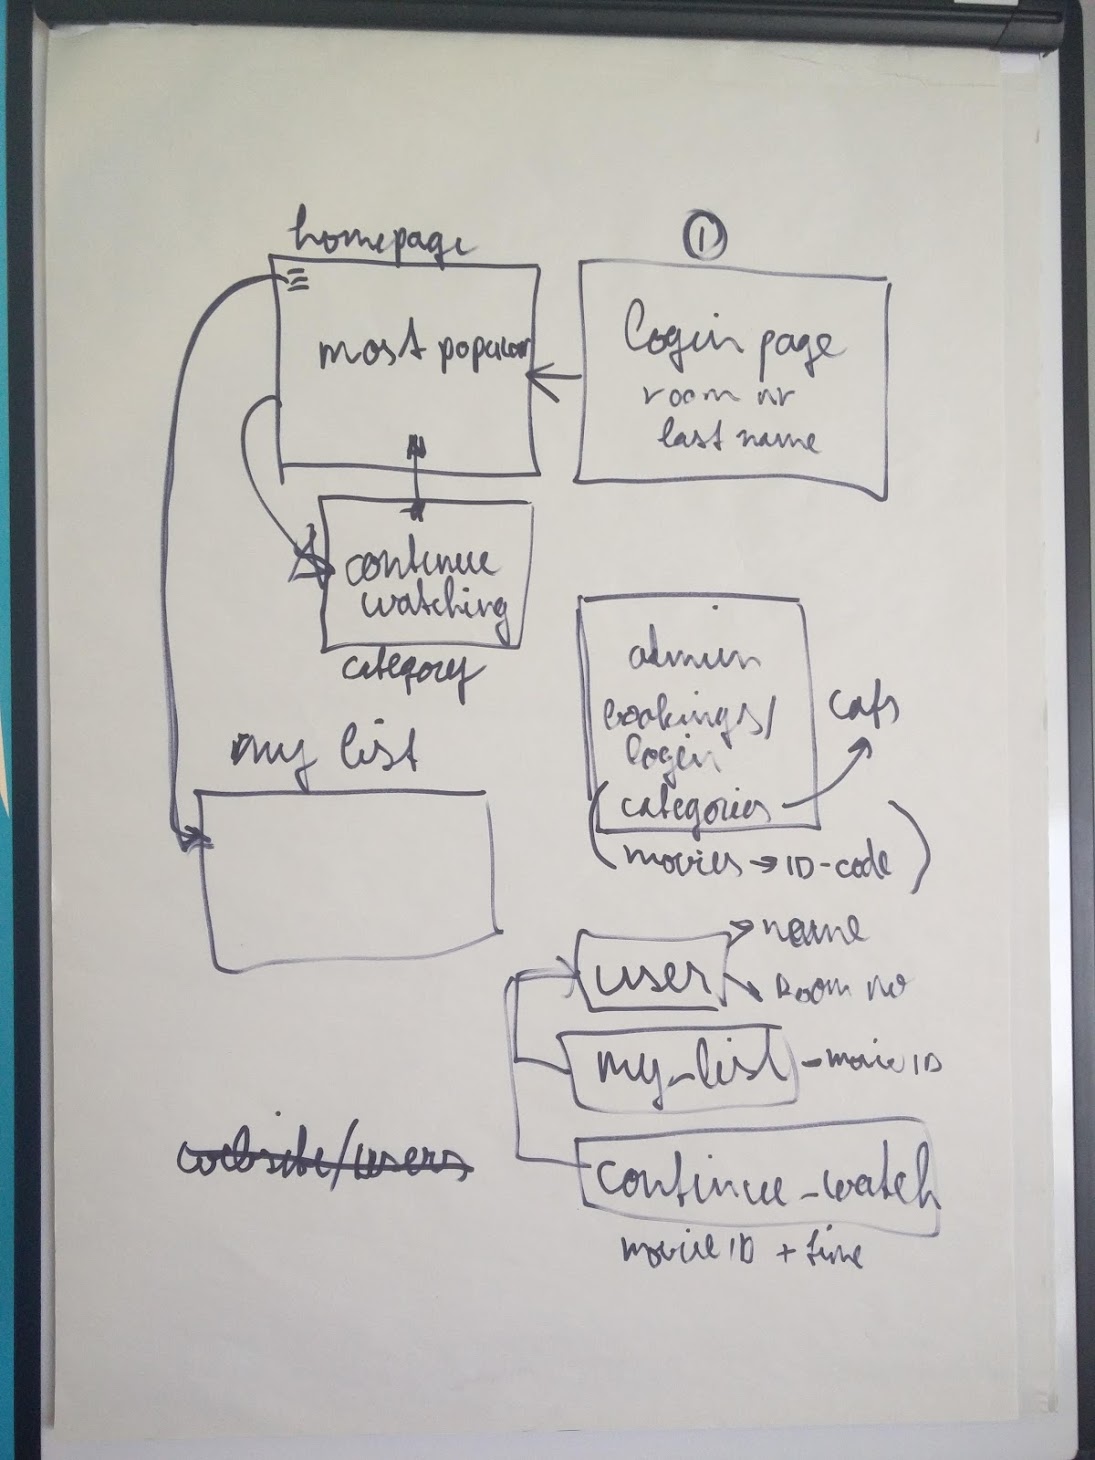 homepage
most popular
1
Login page
room nr
last name
continue
watching
category
my list
admin
bookings/
login
categories
cats
movies → ID-code
user
name
Room nr
my_list - movie ID
continue_watch
movie ID + time
website/users